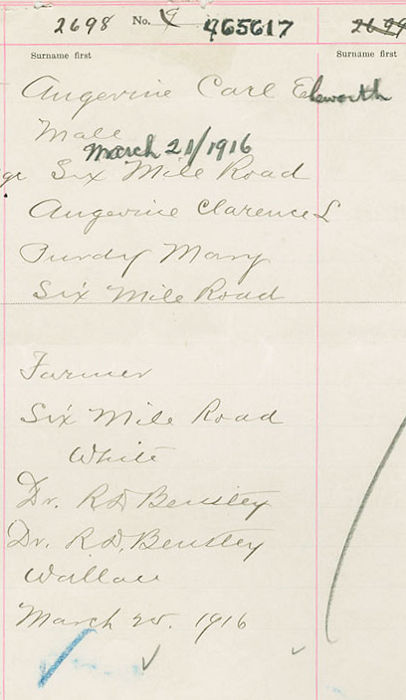 2698 No. 9 465617 2699
Surname first Surname first
Angevine Carl Elsworth
Male
March 21/1916
Six Mile Road
Angevine Clarence L
Purdy Mary
Six Mile Road
Farmer
Six Mile Road
White
Dr. R D Bensley
Dr. R. D. Bensley
Wallace
March 25. 1916